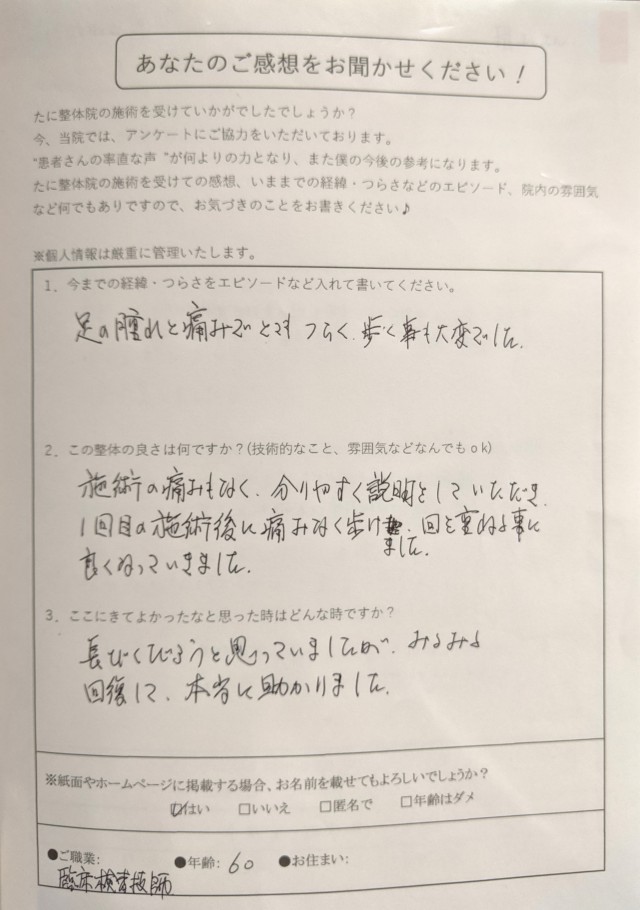 あなたのご感想をお聞かせください！
たに整体院の施術を受けていかがでしたでしょうか？
今、当院では、アンケートにご協力をいただいております。
“患者さんの率直な声”が何よりの力となり、また僕の今後の参考になります。
たに整体院の施術を受けての感想、いままでの経緯・つらさなどのエピソード、院内の雰囲気
など何でもありですので、お気づきのことをお書きください♪
※個人情報は厳重に管理いたします。
1．今までの経緯・つらさをエピソードなど入れて書いてください。
足の腫れと痛みでとてもつらく、歩く事も大変でした。
2．この整体の良さは何ですか？(技術的なこと、雰囲気などなんでもｏｋ)
施術の痛みもなく、分りやすく説明をしていただき、
1回目の施術後に痛みなく歩けました。回を重ねる事に
良くなっていきました。
3．ここにきてよかったなと思った時はどんな時ですか？
長びくだろうと思っていましたが、みるみる
回復して、本当に助かりました。
※紙面やホームページに掲載する場合、お名前を載せてもよろしいでしょうか？
☑はい □いいえ □匿名で □年齢はダメ
●ご職業: ●年齢: 60 ●お住まい:
臨床検査技師